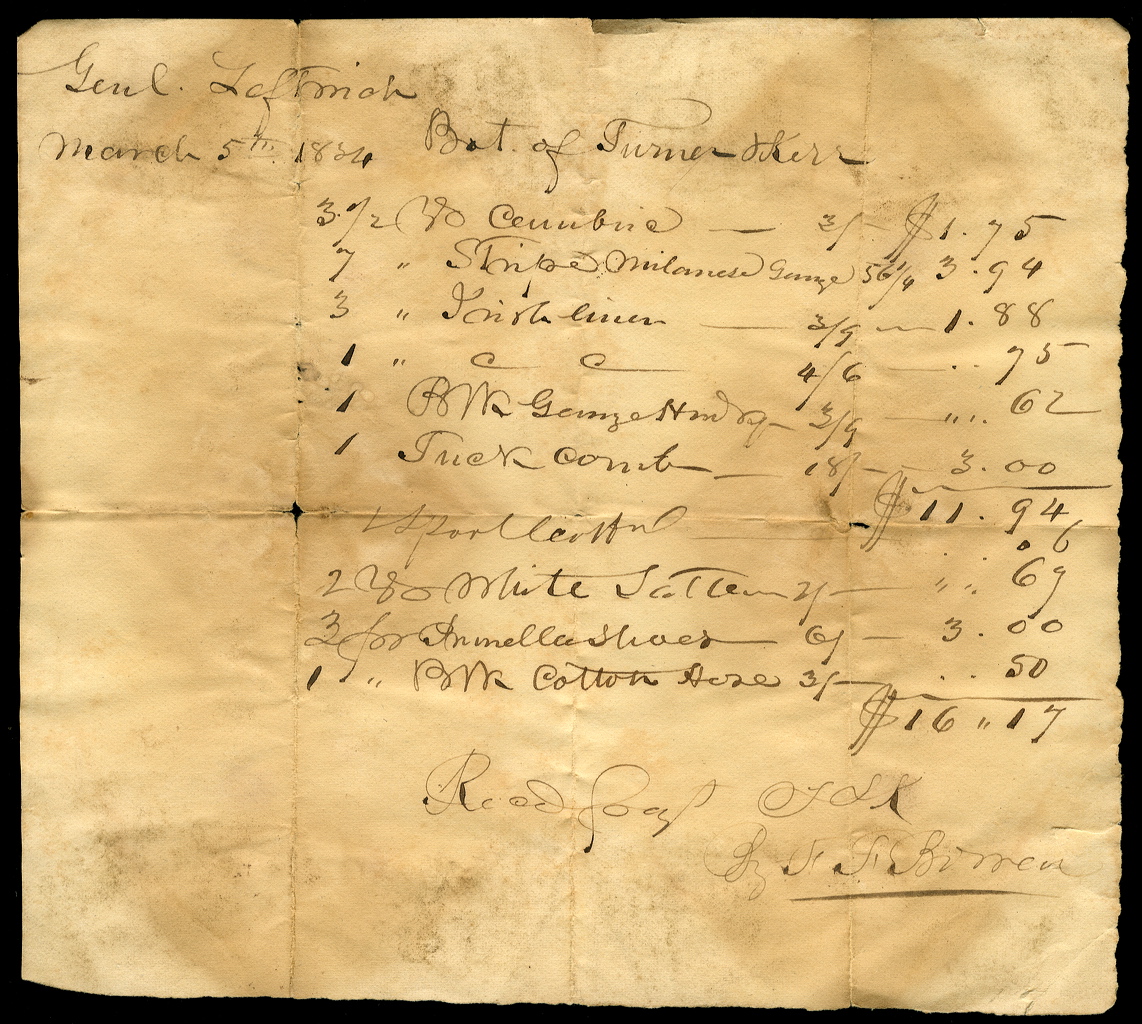 Genl. Leftwich
March 5th 1834 Bot. of Turner & Kerr
3 1/2 Yd Cambric — 3/— $1.75
7 " Stripe Milanese Gauze 56 1/4 3.94
3 " Irish linen — 3/9 — 1.88
1 " C C 4/6 — .. 75
1 Blk Gauze Hndkf — 3/9 — ,,. 62
1 Tuck Comb — 18/— 3.00
$11.94
1 Spool Cotton — . 6
2 Yd White Satteen 2/— " " 69
3 pr Prunella Shoes — 6/ — 3.00
1 " Blk Cotton Hose 3/— .. 50
$16 " 17
Recd Pay T & K
By